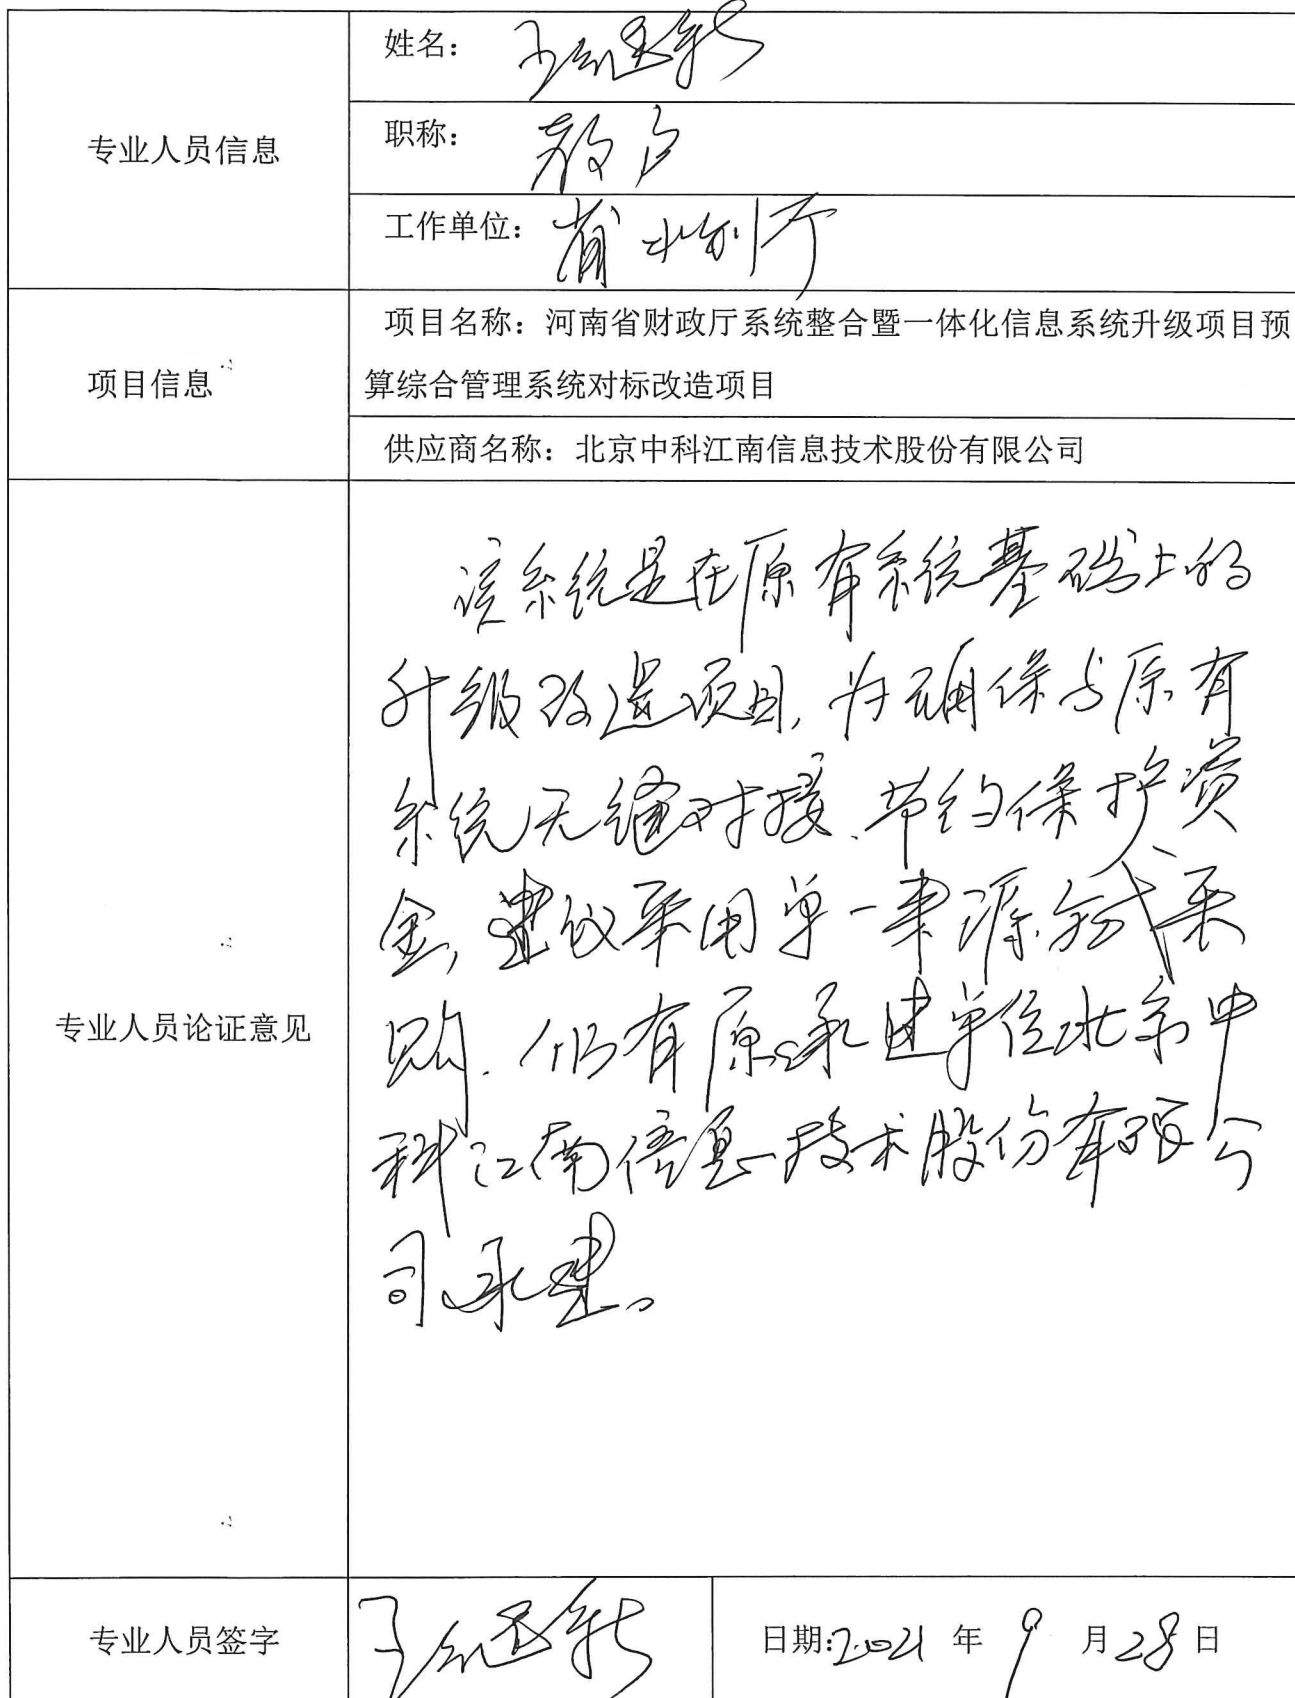 专业人员信息
姓名：王继新
职称：教高
工作单位：省水利厅
项目信息
项目名称：河南省财政厅系统整合暨一体化信息系统升级项目预
算综合管理系统对标改造项目
供应商名称：北京中科江南信息技术股份有限公司
专业人员论证意见
该系统是在原有系统基础上的
升级改造项目，为确保与原有
系统无缝对接、节约保护资
金，建议采用单一来源方式采
购．仍有原承建单位北京中
科江南信息技术股份有限公
司承建。
专业人员签字
王继新
日期:2021 年 9 月 28 日